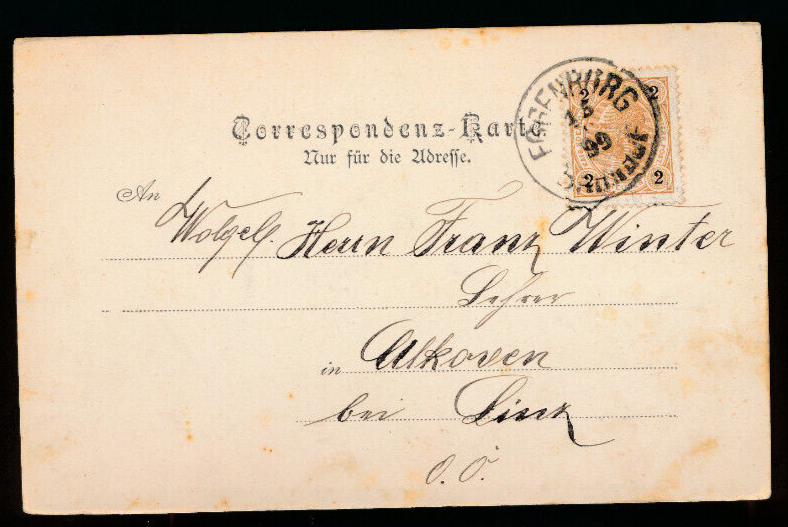 Correspondenz-Karte
Nur für die Adresse.
2 2
2 2
99
An Wolgeb. Herrn Franz Winter
Lehrer
in Alkoven
bei Linz
O. Ö.